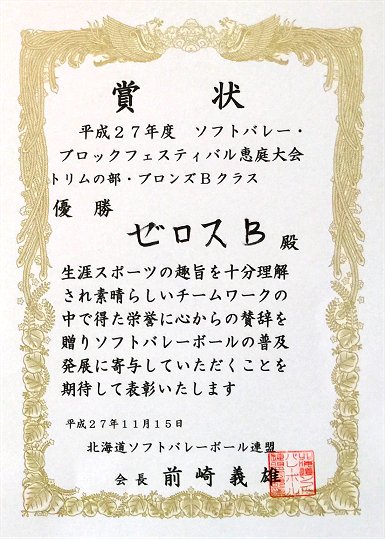 賞状
平成27年度 ソフトバレー・
ブロックフェスティバル恵庭大会
トリムの部・ブロンズBクラス
優勝
ゼロスB 殿
生涯スポーツの趣旨を十分理解
され素晴らしいチームワークの
中で得た栄誉に心からの賛辞を
贈りソフトバレーボールの普及
発展に寄与していただくことを
期待して表彰いたします
平成27年11月15日
北海道ソフトバレーボール連盟
会長 前崎義雄